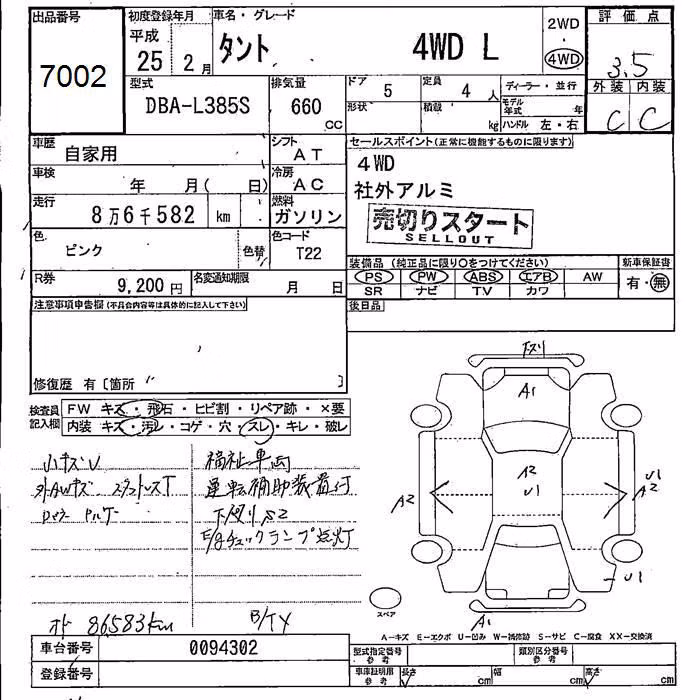 出品番号
7002
初度登録年月
平成
25 2月
車名・グレード
タント 4WD L
2WD
・
4WD
評価点
3.5
外装 内装
C C
型式
DBA-L385S
排気量
660 CC
ドア 5
定員 4人
形状
積載 kg
ディーラー・並行
モデル年式 年
ハンドル 左・右
車歴
自家用
シフト
AT
車検
年 月( 日)
冷房
AC
走行
8万6千582 km
燃料
ガソリン
色
ピンク
色替
色コード
T22
R券
9,200円
名変通知期限
月 日
セールスポイント(正常に機能するものに限ります)
4WD
社外アルミ
売切りスタート
SELLOUT
装備品(純正品に限り○をつけてください)
PS PW ABS エアB AW
SR ナビ TV カワ
新車保証書
有・無
後日品
注意事項申告欄(不具合内容等は具体的に記入して下さい)
修復歴 有〔箇所 〕
検査員
記入欄
FW キズ・飛石・ヒビ割・リペア跡・×要
内装 キズ・汚レ・コゲ・穴・スレ・キレ・破レ
小キズU
外AWキズ
福祉車両
運転補助装置付
下廻りS2
E/gチェックランプ点灯
86583km
B/TX
下スリ
A1
A2
U1
A2
U1
A2
-U1
A1
スペア
A-キズ E-エクボ U-凹み W-補修跡 S-サビ C-腐食 XX-交換済
車台番号
0094302
登録番号
型式指定番号
参考
類別区分番号
参考
車庫証明用
参考
長さ cm
幅 cm
高さ cm